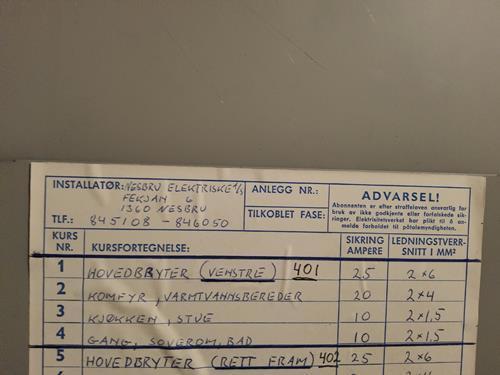 INSTALLATØR: NESBRU ELEKTRISKE A/S
FEKJAN 6
1360 NESBRU
TLF.: 845108 - 846050
ANLEGG NR.:
TILKOBLET FASE:
ADVARSEL!
Abonnenten er etter straffeloven ansvarlig for
bruk av ikke godkjente eller forfalskede sik-
ringer. Elektrisitetsverket har plikt til å an-
melde forholdet til påtalemyndigheten.
KURS NR. KURSFORTEGNELSE: SIKRING AMPERE LEDNINGSTVERR- SNITT I MM²
1 HOVEDBRYTER (VENSTRE) 401 25 2×6
2 KOMFYR, VARMTVANNSBEREDER 20 2×4
3 KJØKKEN, STUE 10 2×1,5
4 GANG, SOVEROM, BAD 10 2×1,5
5 HOVEDBRYTER (RETT FRAM) 402 25 2×6